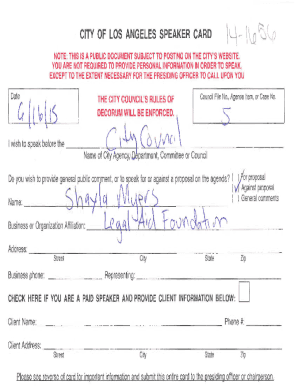 CITY OF LOS ANGELES SPEAKER CARD
14-1656
NOTE: THIS IS A PUBLIC DOCUMENT SUBJECT TO POSTING ON THE CITY'S WEBSITE.
YOU ARE NOT REQUIRED TO PROVIDE PERSONAL INFORMATION IN ORDER TO SPEAK,
EXCEPT TO THE EXTENT NECESSARY FOR THE PRESIDING OFFICER TO CALL UPON YOU
Date
6/16/15
THE CITY COUNCIL'S RULES OF
DECORUM WILL BE ENFORCED.
Council File No., Agenda Item, or Case No.
5
I wish to speak before the
City Council
Name of City Agency, Department, Committee or Council
Do you wish to provide general public comment, or to speak for or against a proposal on the agenda?
( ) For proposal
(✓) Against proposal
( ) General comments
Name: Shayla Myers
Business or Organization Affiliation: Legal Aid Foundation
Address:
Street City State Zip
Business phone: Representing:
CHECK HERE IF YOU ARE A PAID SPEAKER AND PROVIDE CLIENT INFORMATION BELOW:
Client Name: Phone #:
Client Address:
Street City State Zip
Please see reverse of card for important information and submit this entire card to the presiding officer or chairperson.